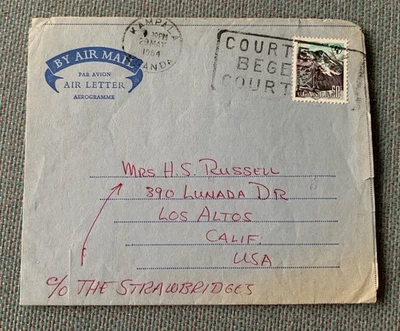 BY AIR MAIL
PAR AVION
AIR LETTER
AEROGRAMME
KAMPALA
10PM
29 MAY
1964
COURT
BEGE
COURT
MRS H.S. RUSSELL
390 LUNADA DR
LOS ALTOS
CALIF.
USA
c/o THE STRAWBRIDGES